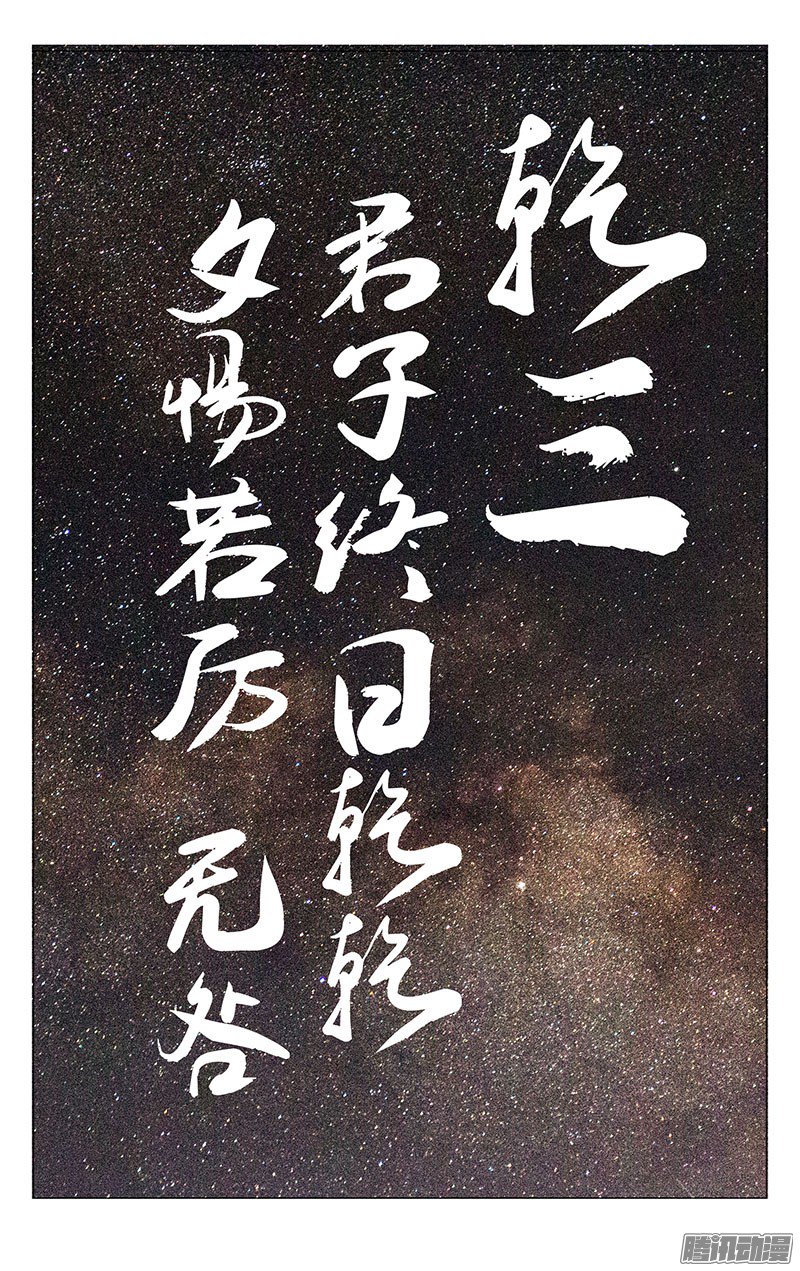 乾三
君子终日乾乾
夕惕若厉 无咎
腾讯动漫